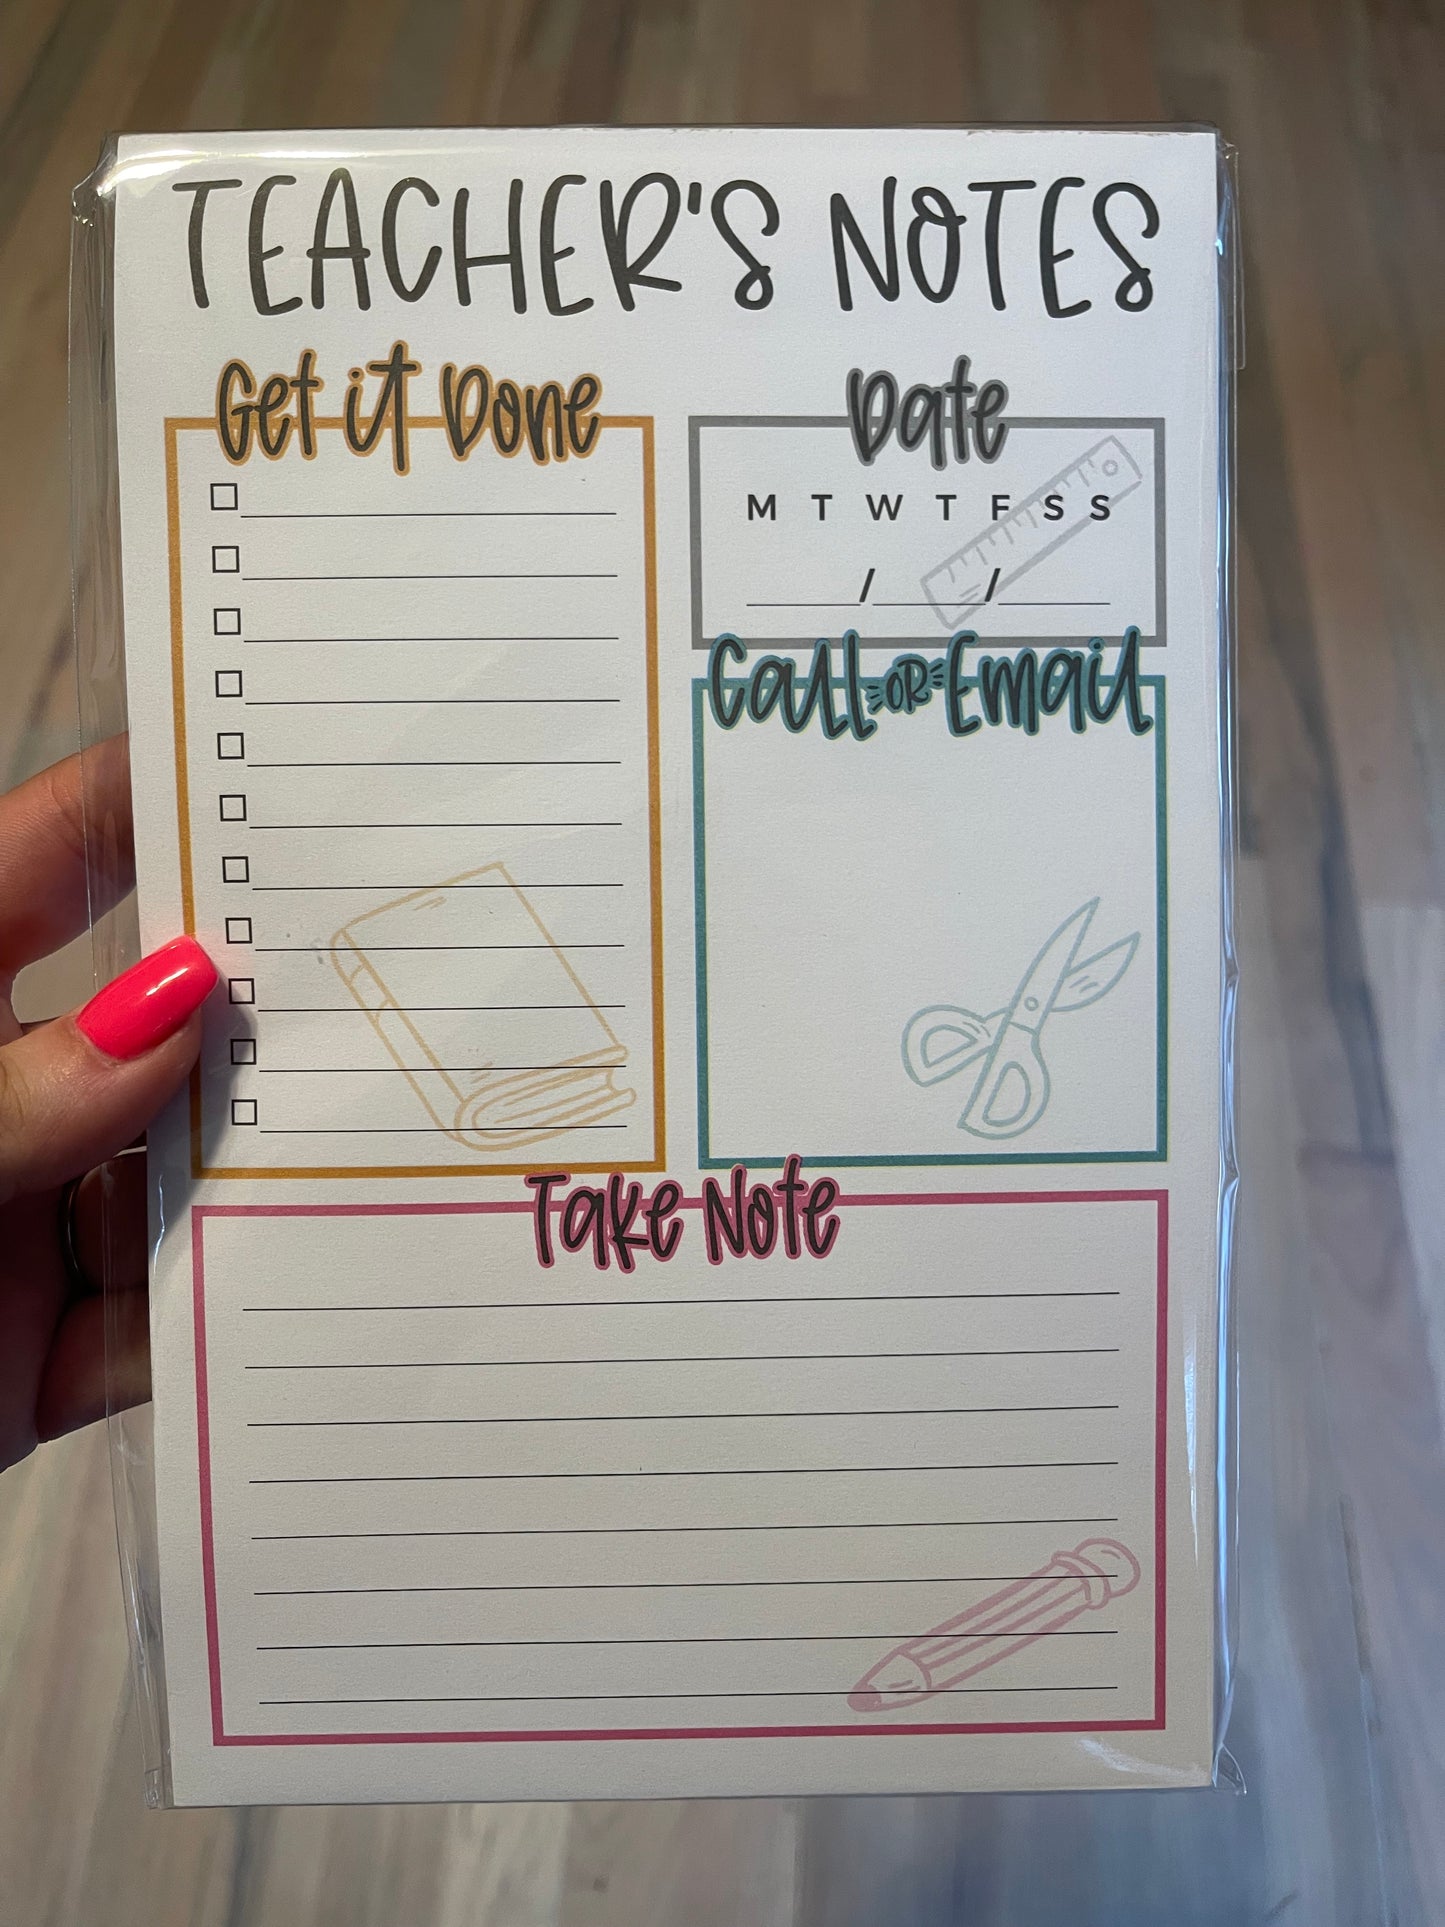 TEACHER'S NOTES
Get it Done
Date
M T W T F S S
/ /
Call OR Email
Take Note